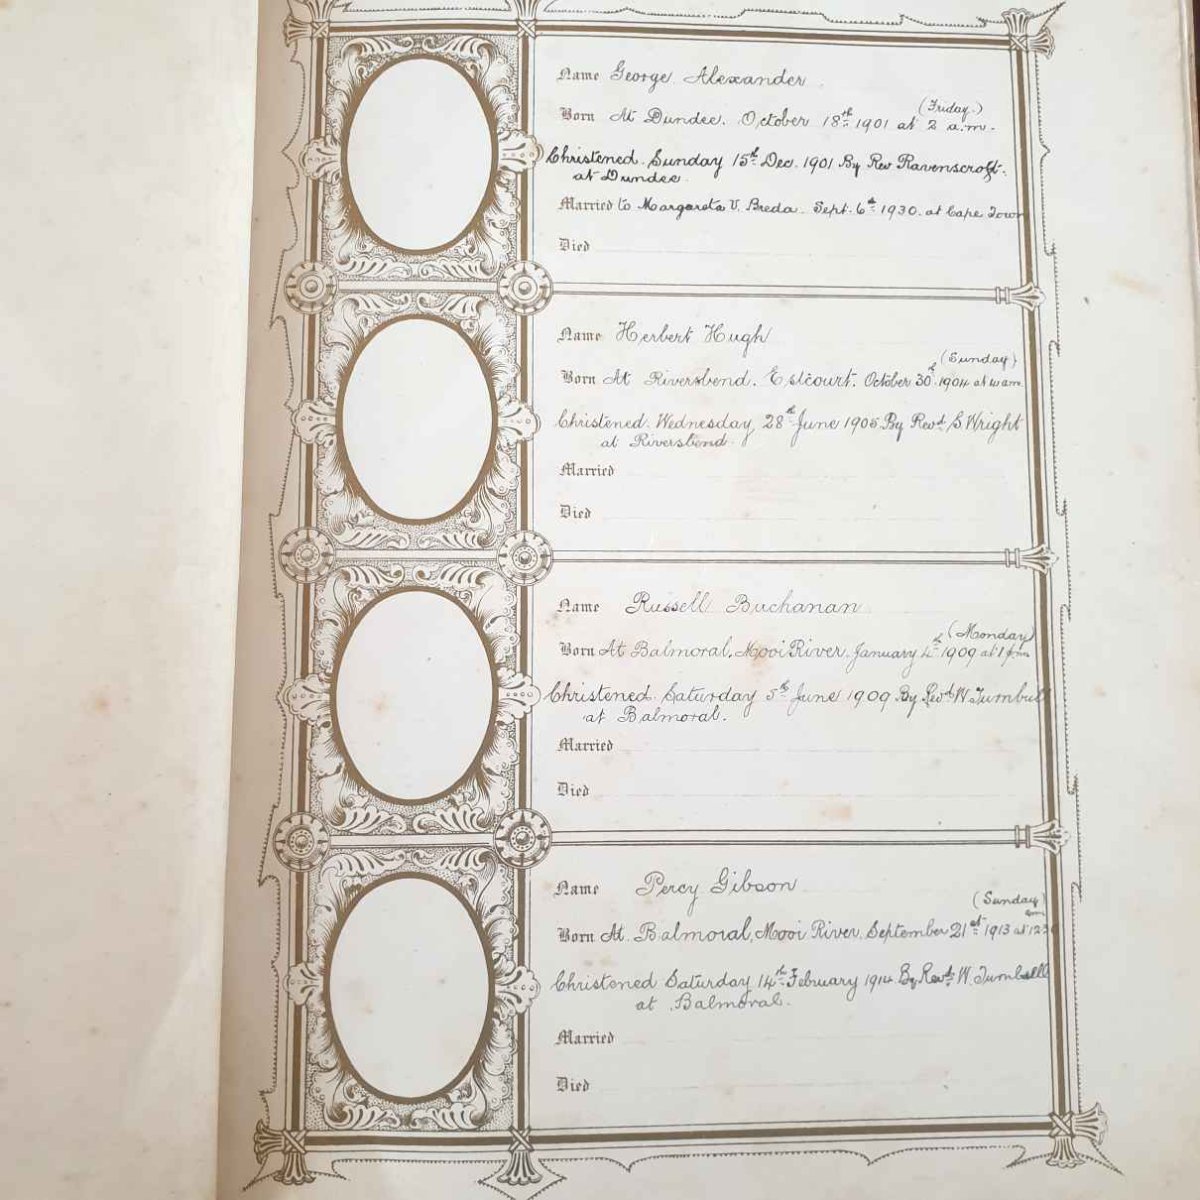 Name George Alexander
(Friday.)
Born At Dundee. October 18th 1901 at 2 a.m.
Christened. Sunday 15th Dec. 1901 By Rev Ravenscroft.
at Dundee.
Married to Margareta V. Breda. Sept. 6th 1930. at Cape Town
Died
Name Herbert Hugh
(Sunday)
Born At Riversbend. Estcourt. October 30th 1904 at 10 am.
Christened. Wednesday, 28th June 1905 By Revd S Wright
at Riversbend.
Married
Died
Name Russell Buchanan
(Monday)
Born At Balmoral, Mooi River. January 4th 1909 at 1 pm
Christened. Saturday 5th June 1909 By Revd W. Turnbull
at Balmoral.
Married
Died
Name Percy Gibson
(Sunday)
am
Born At Balmoral, Mooi River. September 21st 1913 at
Christened Saturday 14th February 1914 By Revd W. Turnbull
at Balmoral.
Married
Died